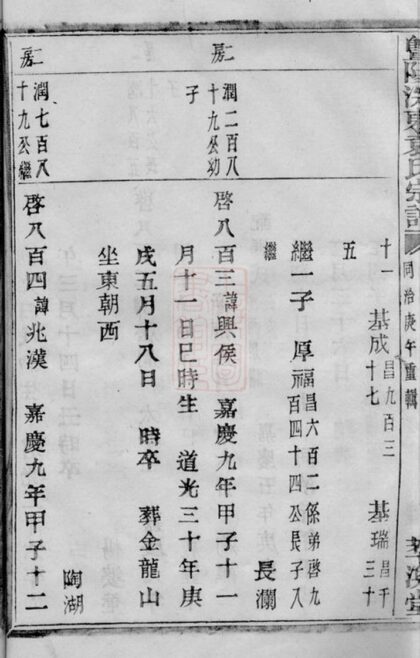 東袁氏宗譜
同治庚午重輯
十一 基成昌九百三十七 基瑞昌千三十
五
繼一子 厚福昌六百二係弟啓九百四十四公長子入
繼 長瀾
二房
潤二百八十九公幼子
啓八百三諱興侯 嘉慶九年甲子十一
月十一日巳時生 道光三十年庚
戌五月十八日 時卒 葬金龍山
坐東朝西
陶湖
二房
潤七百八十九公繼
啓八百四諱兆漢 嘉慶九年甲子十二